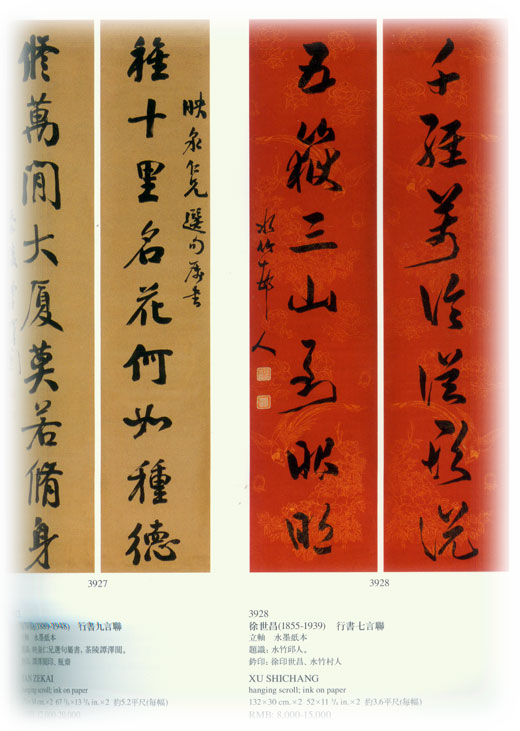 映泉仁兄選句屬書
種十里名花何如種德
修萬閒大厦莫若脩身
千萬從形況
五嶽三山
水竹邨人
3927
3928
(1889-1948) 行書九言聯
立軸 水墨紙本
仁兄選句屬書。茶陵譚澤闓。
譚澤闓印、瓶齋
ZEKAI
hanging scroll; ink on paper
×2 約5.2平尺(每幅)
3928
徐世昌(1855-1939) 行書七言聯
立軸 水墨紙本
題識：水竹邨人。
鈐印：徐印世昌、水竹村人
XU SHICHANG
hanging scroll; ink on paper
132×30 cm.×2 52×11 3/4 in.×2 約3.6平尺(每幅)
RMB: 8,000-15,000